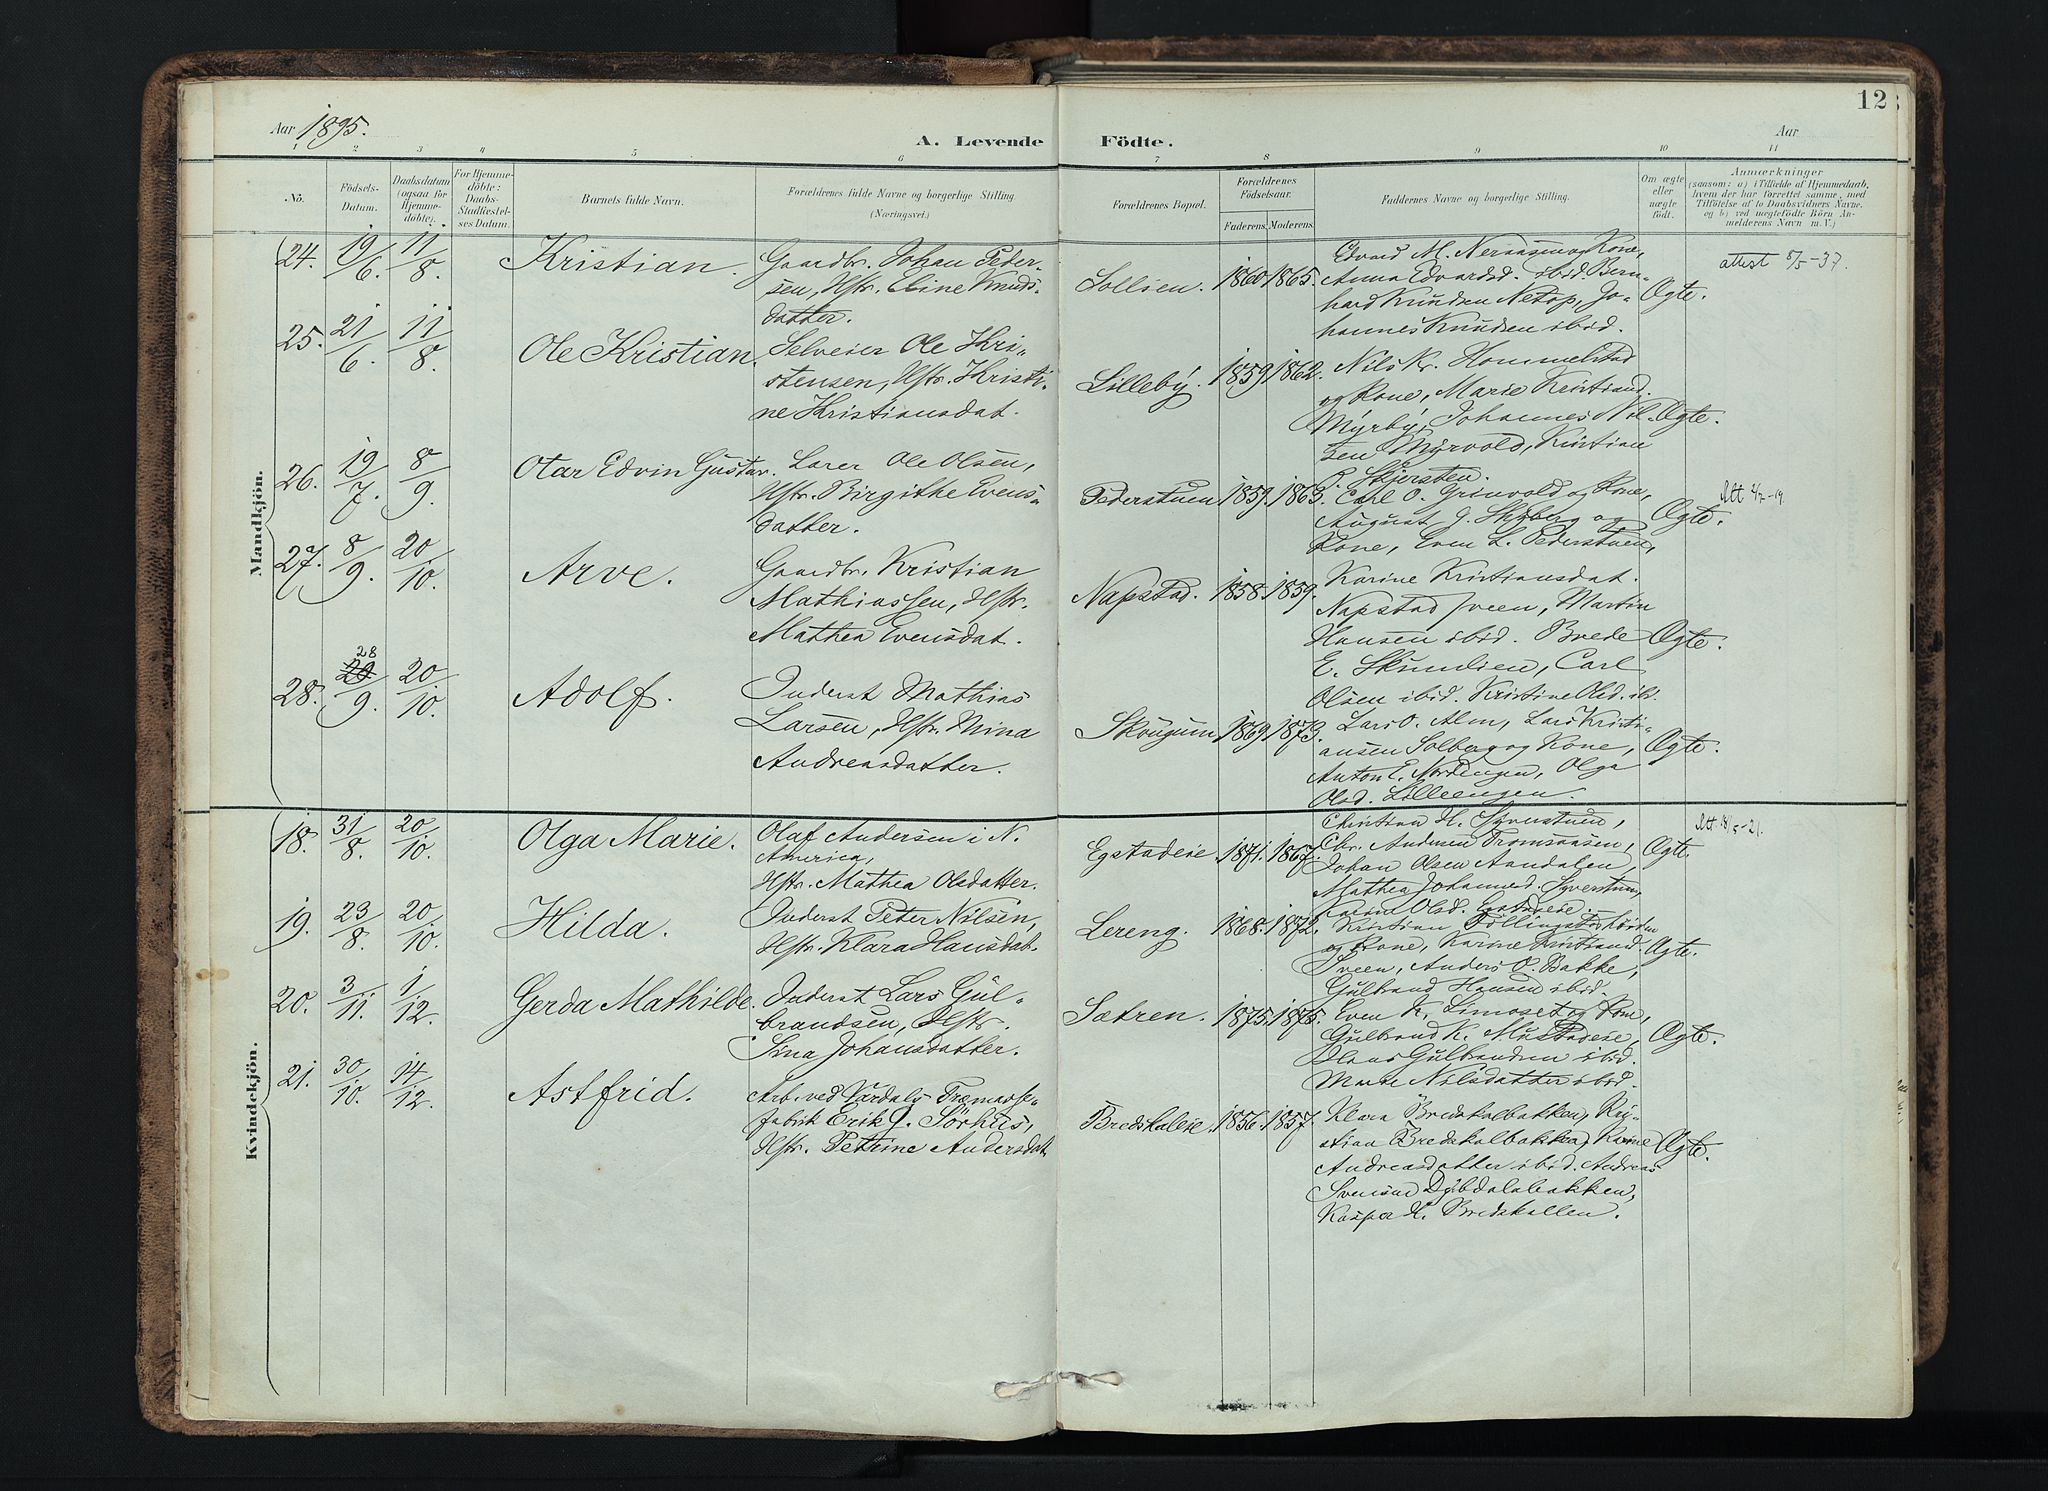 12
Aar 1895.
A. Levende Födte.
Aar
1 2 3 4 5 6 7 8 9 10 11
No.
Födsels-
Datum.
Daabsdatum
(ogsaa for
Hjemme-
döbte).
For Hjemme-
döbte:
Daabs-
Stadfæstel-
ses Datum.
Barnets fulde Navn.
Forældrenes fulde Navne og borgerlige Stilling.
(Næringsvei.)
Forældrenes Bopæl.
Forældrenes
Födselsaar.
Faderens. Moderens.
Faddernes Navne og borgerlige Stilling.
Om ægte
eller
uægte
födt.
Anmærkninger
(saasom: a) i Tilfælde af Hjemmedaab,
hvem der har forrettet samme, med
Tilföielse af to Daabsvidners Navne,
og b) ved uægtefödte Börn An-
melderens Navn m.V.)
Mandkjön.
24. 19/6. 11/8. Kristian.
Gaardbr. Johan Peder-
sen, Hstr. Eline Knuds-
datter.
Sollien. 1860 1865.
Edvard M. Neraasen og Kone,
Anna Edvardsd. ibid. Bern-
hard Knudsen Netop, Jo-
hannes Knudsen ibid.
Ægte.
attest 5/5-37.
25. 21/6. 11/8. Ole Kristian.
Selveier Ole Kri-
stensen, Hstr. Kristi-
ne Kristiansdat.
Lilleby. 1859 1862.
Nils K. Hommelstad
og Kone, Marie Kristiansd.
Myrby, Johannes Nil-
sen Myrvold, Kristian
P. Skjersten.
Ægte.
26. 19/7. 8/9. Otar Edvin Gustav.
Lærer Ole Olsen,
Hstr. Birgithe Evens-
datter.
Pederstuen 1859. 1863.
Carl O. Grinvold og Kone,
August J. Skyberg og
Kone, Even L. Pederstuen,
Ægte.
Att 2/7-19.
27. 8/9. 20/10. Arve.
Gaardbr. Kristian
Mathiassen, Hstr.
Mathea Evensdat.
Napstad. 1858. 1859.
Karine Kristiansdat.
Napstadsveen, Martin
Hansen ibid. Brede
E. Skumlien, Carl
Olsen ibid. Kristine Olsd. ib.
Ægte.
28. 28/9. 20/10. Adolf.
Inderst Mathias
Larsen, Hstr. Mina
Andreasdatter.
Skougum 1869 1873.
Lars O. Alm, Lars Kristi-
ansen Solberg og Kone,
Anton E. Nordengen, Olga
Olsd. Lilleengen.
Ægte.
Kvindekjön.
18. 31/8. 20/10. Olga Marie.
Olaf Andersen i N.
America,
Hstr. Mathea Olsdatter.
Egstadeie. 1871. 1867.
Christian H. Syverstuen,
Chr. Andersen Tromsaasen,
Johan Olsen Aandalen,
Mathea Johannesd. Syverstuen,
Karine Olsd. Egstadeie.
Ægte.
Att. 18/5-21.
19. 23/8. 20/10. Hilda.
Inderst Peter Nilsen,
Hstr. Klara Hansdat.
Lereng. 1868. 1872.
Kristian
og Kone, Karine Kristiansd.
Sveen, Anders O. Bakke,
Gulbrand Hansen ibid.
Ægte.
20. 3/11. 1/12. Gerda Mathilde.
Inderst Lars Gul-
brandsen, Hstr.
Sina Johansdatter.
Sætren. 1875. 1875.
Even K. Limoset og Kone,
Gulbrand K. Mustadeie,
Hans Gulbrandsen ibid.
Marie Nilsdatter ibid.
Ægte.
21. 30/10. 14/12. Astfrid.
Arb. ved Vardals Træmasse-
fabrik Erik J. Sörhus,
Hstr. Petrine Andersdat.
Bredskaleie. 1856. 1857.
Klara Bredskalbakken, Kri-
stian Bredskalbakken, Karine
Andreasdatter ibid. Andreas
Svensen Dybdalsbakken,
Kaspar H. Bredskallen.
Ægte.